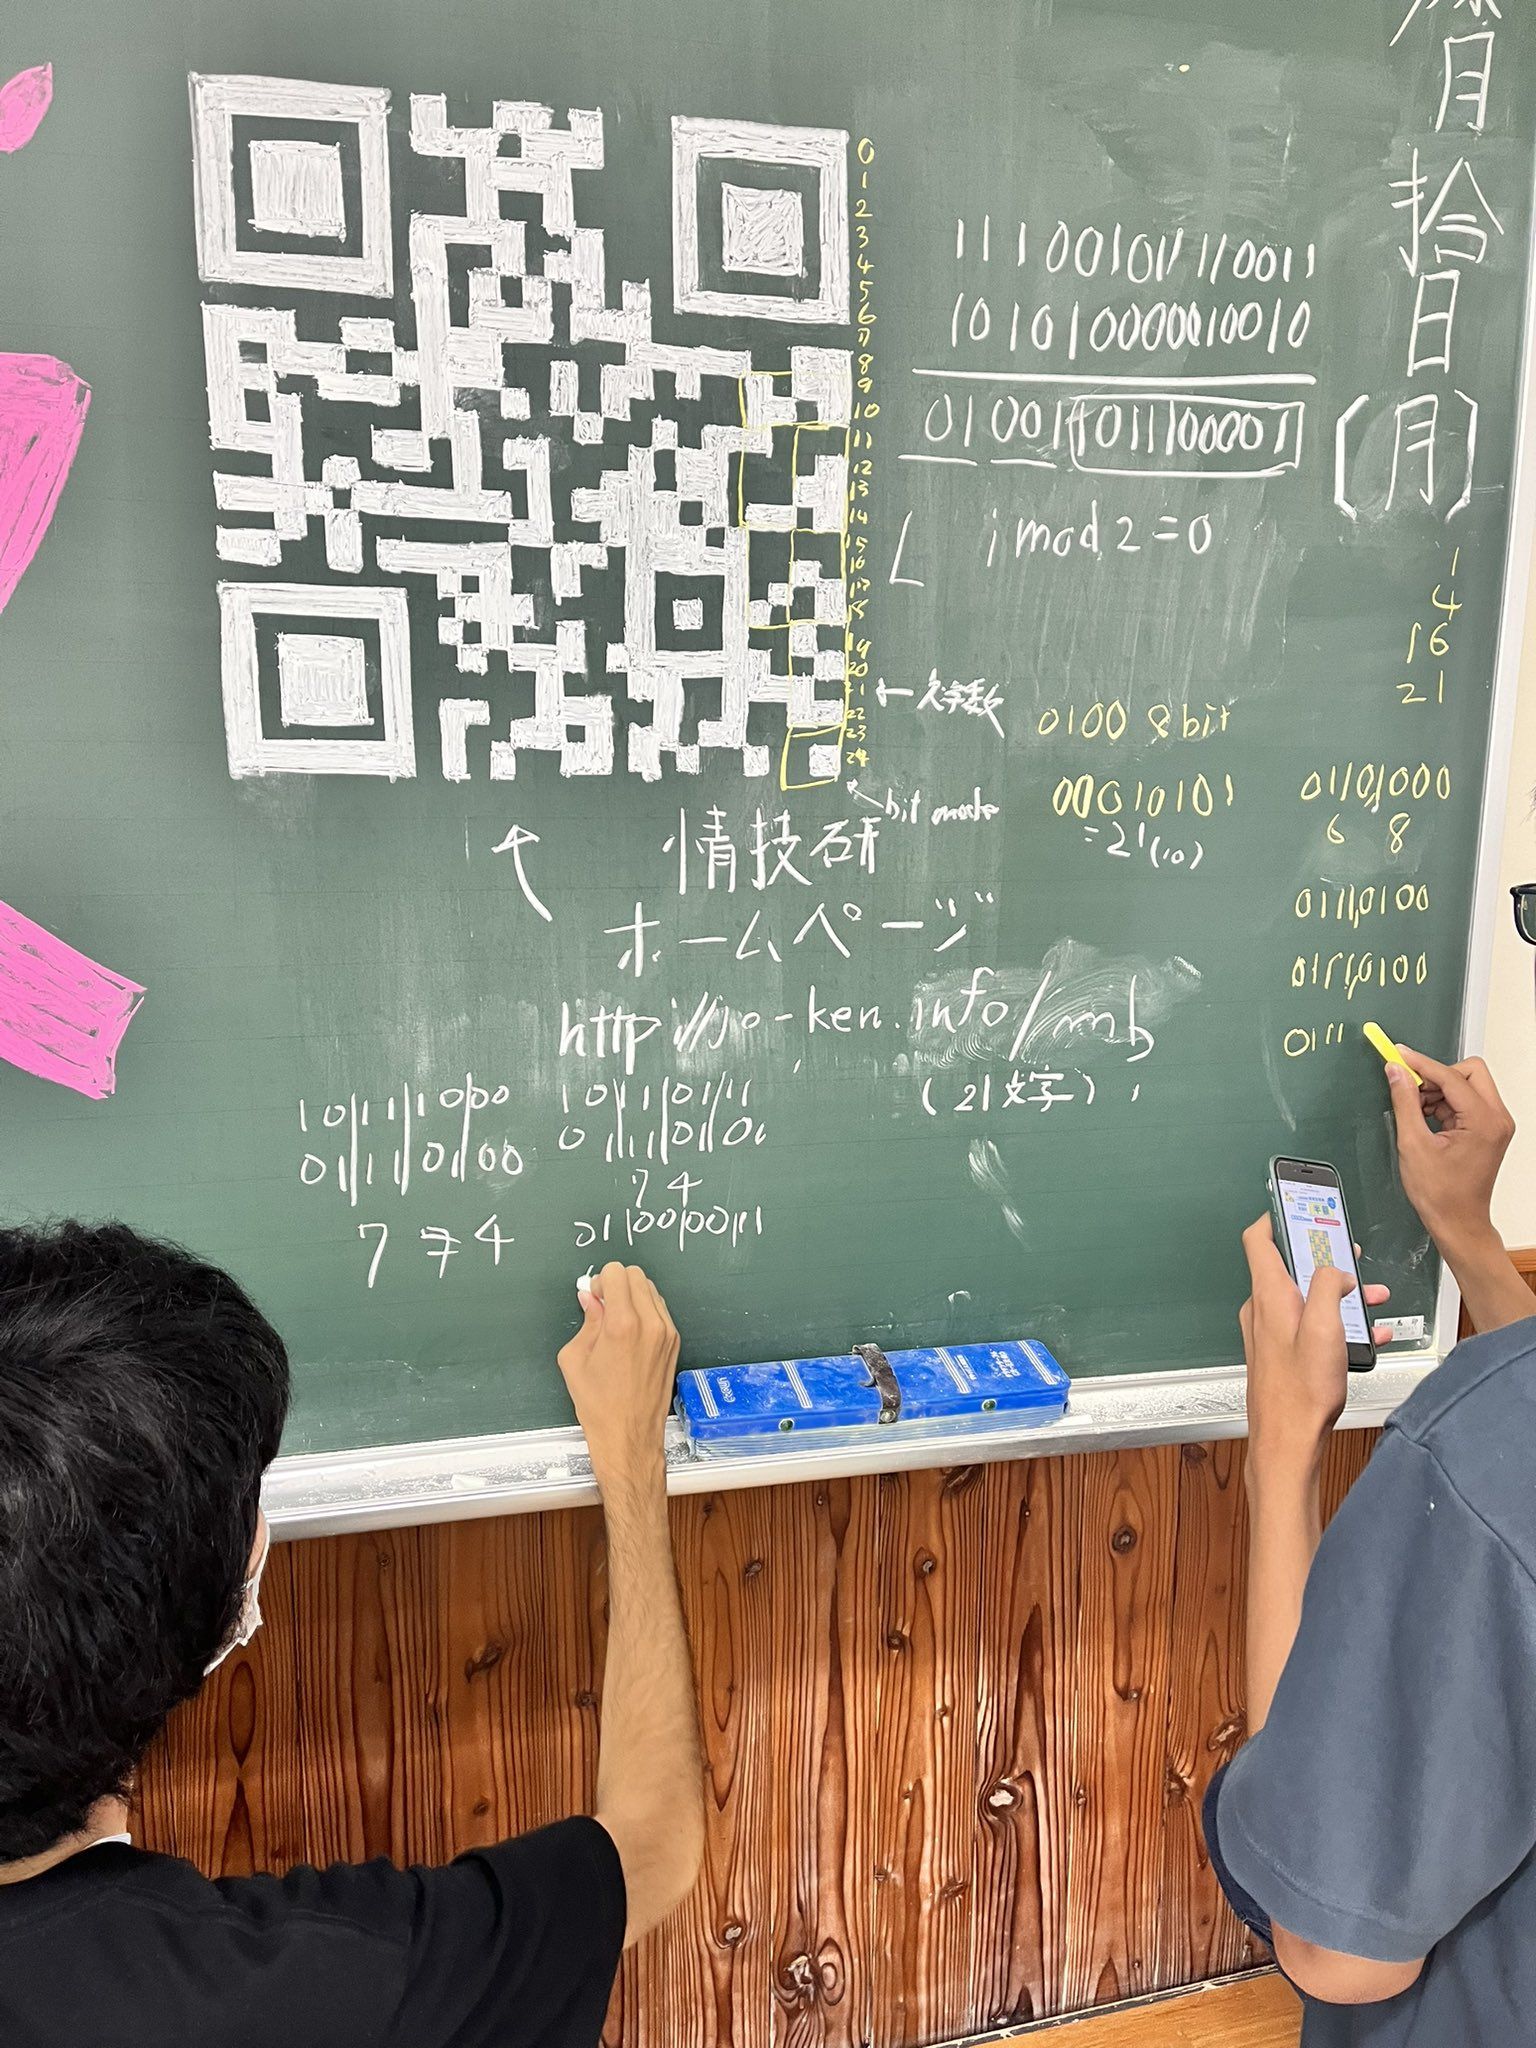 月
拾
日
(月)
0
1
2
3
4
5
6
7
8
9
10
11
12
13
14
15
16
17
18
19
20
21
22
23
24
111001011110011
101010000010010
010011101100001
L i mod 2 = 0
1
4
16
21
←文字数
0100 8bit
bit mode
00010101
=21(10)
01101000
6 8
01110100
01110100
0111
情技研
ホームページ
http://jo-ken.info/mmb
(21文字)
10111000
01110100
7 4
10110111
01110100
7 4
01100011